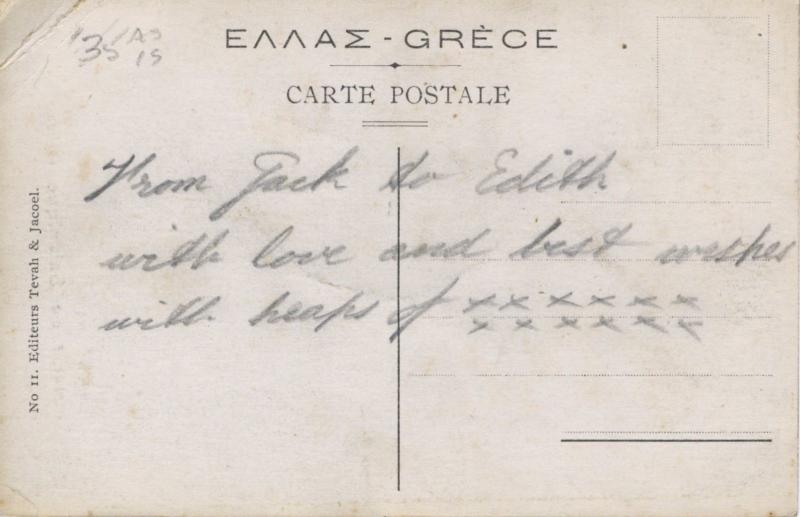 ΕΛΛΑΣ - GRÈCE
CARTE POSTALE
From Jack to Edith
with love and best wishes
with heaps of x x x x x x
x x x x x x
No 11. Editeurs Tevah & Jacoel.